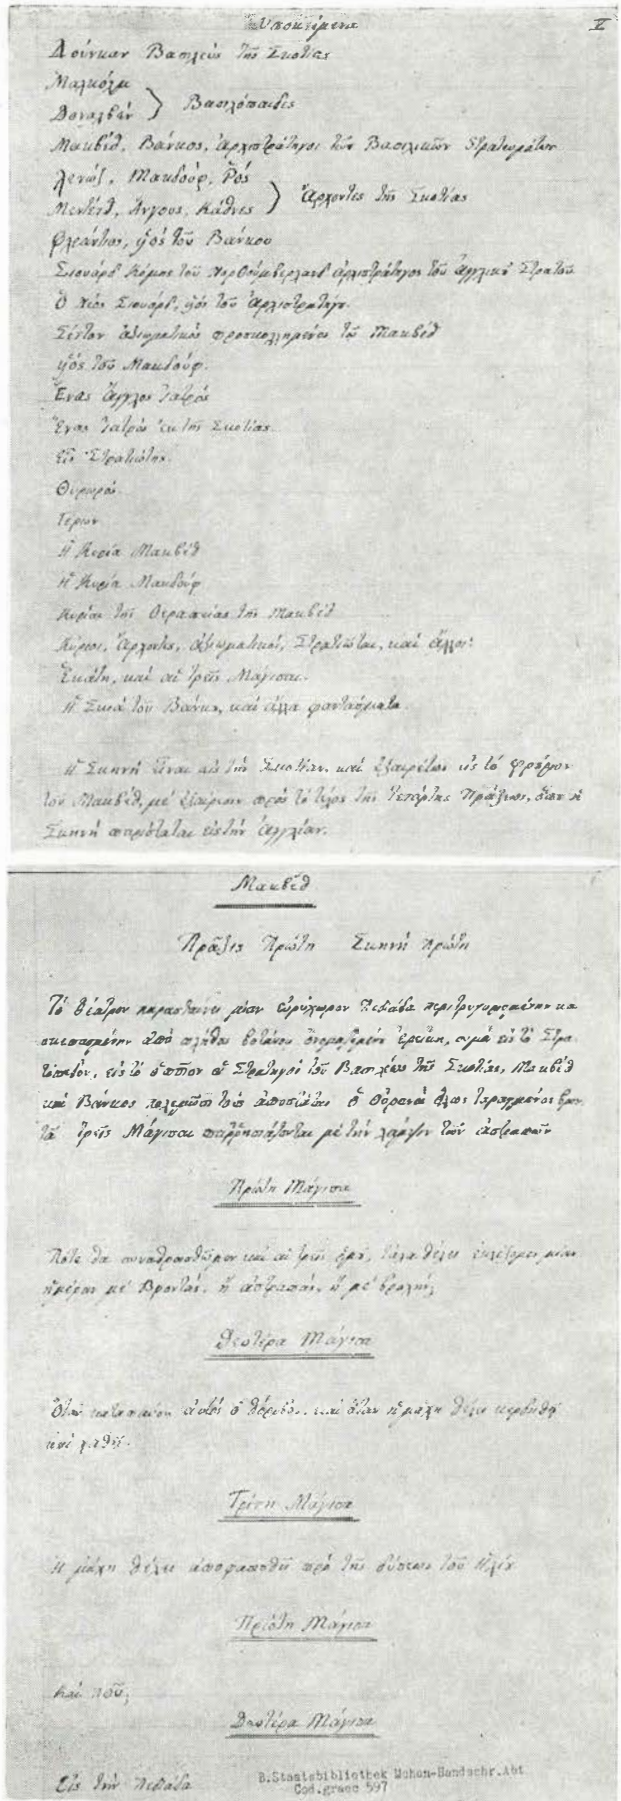 Ὑποκείμενα V
Δούνκαν Βασιλεὺς τῆς Σκοτίας
Μαλκόλμ
Δοναλβέν } Βασιλόπαιδες
Μακβέθ, Βάνκος, ἀρχιστράτηγοι τῶν Βασιλικῶν Στρατευμάτων
Λενώξ, Μακδούφ, Ῥός
Μεντέτθ, Ἄνγους, Κάθνες } Ἄρχοντες τῆς Σκοτίας
Φλεάντιος, υἱὸς τοῦ Βάνκου
Σιουάρδ Κόμης τοῦ Νορθούμβερλανδ ἀρχιστράτηγος τοῦ ἀγγλικοῦ Στρατοῦ
Ὁ Νέος Σιουάρδ, υἱὸς τοῦ ἀρχιστρατήγου.
Σέϋτον ἀξιωματικὸς προσκολλημένος τῷ Μακβέθ
υἱὸς τοῦ Μακδούφ.
Ἕνας Ἄγγλος Ἰατρός
Ἕνας Ἰατρὸς ἐκ τῆς Σκοτίας
Εἷς Στρατιώτης.
Θυρωρός.
Γέρων
Ἡ Κυρία Μακβέθ
Ἡ Κυρία Μακδούφ
Κυρίαι τῆς Θεραπείας τῆς Μακβέθ
Κύριοι, Ἄρχοντες, ἀξιωματικοί, Στρατιῶται, καὶ ἄλλοι:
Ἑκάτη, καὶ αἱ τρεῖς Μάγισαι.
Ἡ Σκιὰ τοῦ Βάνκου, καὶ ἄλλα φαντάσματα.
Ἡ Σκηνὴ εἶναι εἰς τὴν Σκοτίαν, καὶ ἐξαιρέτως εἰς τὸ φρούριον
τοῦ Μακβέθ, μὲ ἐξαίρεσιν πρὸς τὸ τέλος τῆς τετάρτης Πράξεως, ὅπου ἡ
Σκηνὴ παριστᾶται εἰς τὴν Ἀγγλίαν.
Μακβέθ
Πρᾶξις Πρώτη Σκηνὴ Πρώτη
Τὸ θέατρον παρασταίνει μίαν εὐρύχωρον Πεδιάδα περιτριγυρισμένην κα
σκεπασμένην ἀπὸ πλῆθος βοτάνου ὀνομαζομένου ἐρείκη, σιμὰ εἰς τὸ Στρα
τόπεδον, εἰς τὸ ὁποῖον οἱ Στρατηγοὶ τοῦ Βασιλέως τῆς Σκοτίας, Μακβέθ
καὶ Βάνκος πολεμοῦν τοὺς ἀποστάτας. ὁ Οὐρανὸς ὅλος ταραγμένος
τρεῖς Μάγισαι παρρησιάζονται μὲ τὴν λάμψιν τῶν ἀστραπῶν
Πρώτη Μάγισα
Πότε θὰ συναθροισθῶμεν καὶ αἱ τρεῖς ὁμοῦ, θέλει ἐκλέξομεν μίαν
ἡμέραν μὲ βροντάς, ἢ ἀστραπάς, ἢ μὲ βροχήν;
Δευτέρα Μάγισα
Ὅταν καταπαύσῃ αὐτὸς ὁ θόρυβος, καὶ ὅταν ἡ μάχη θέλει κερδηθῆ
καὶ χαθῆ.
Τρίτη Μάγισα
Ἡ μάχη θέλει ἀποφασισθῆ πρὸ τῆς δύσεως τοῦ ἡλίου
Πρώτη Μάγισα
Καὶ ποῦ;
Δευτέρα Μάγισα
Εἰς τὴν πεδιάδα
B.Staatsbibliothek Mchen-Handschr.Abt
Cod.graec 597